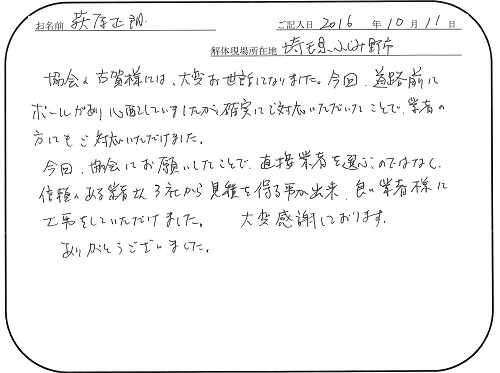 お名前 萩原正朗 ご記入日 2016 年 10 月 11 日
解体現場所在地 埼玉県ふじみ野市
協会の古賀様には、大変お世話になりました。今回、道路前に
ポールがあり心配していましたが確実にご対応いただいたことで、業者の
方にもご対応いただけました。
今回、協会にお願いしたことで、直接業者を選ぶのではなく、
信頼のある業者故3社から見積を得る事が出来、良い業者様に
工事をしていただけました。 大変感謝しております。
ありがとうございました。